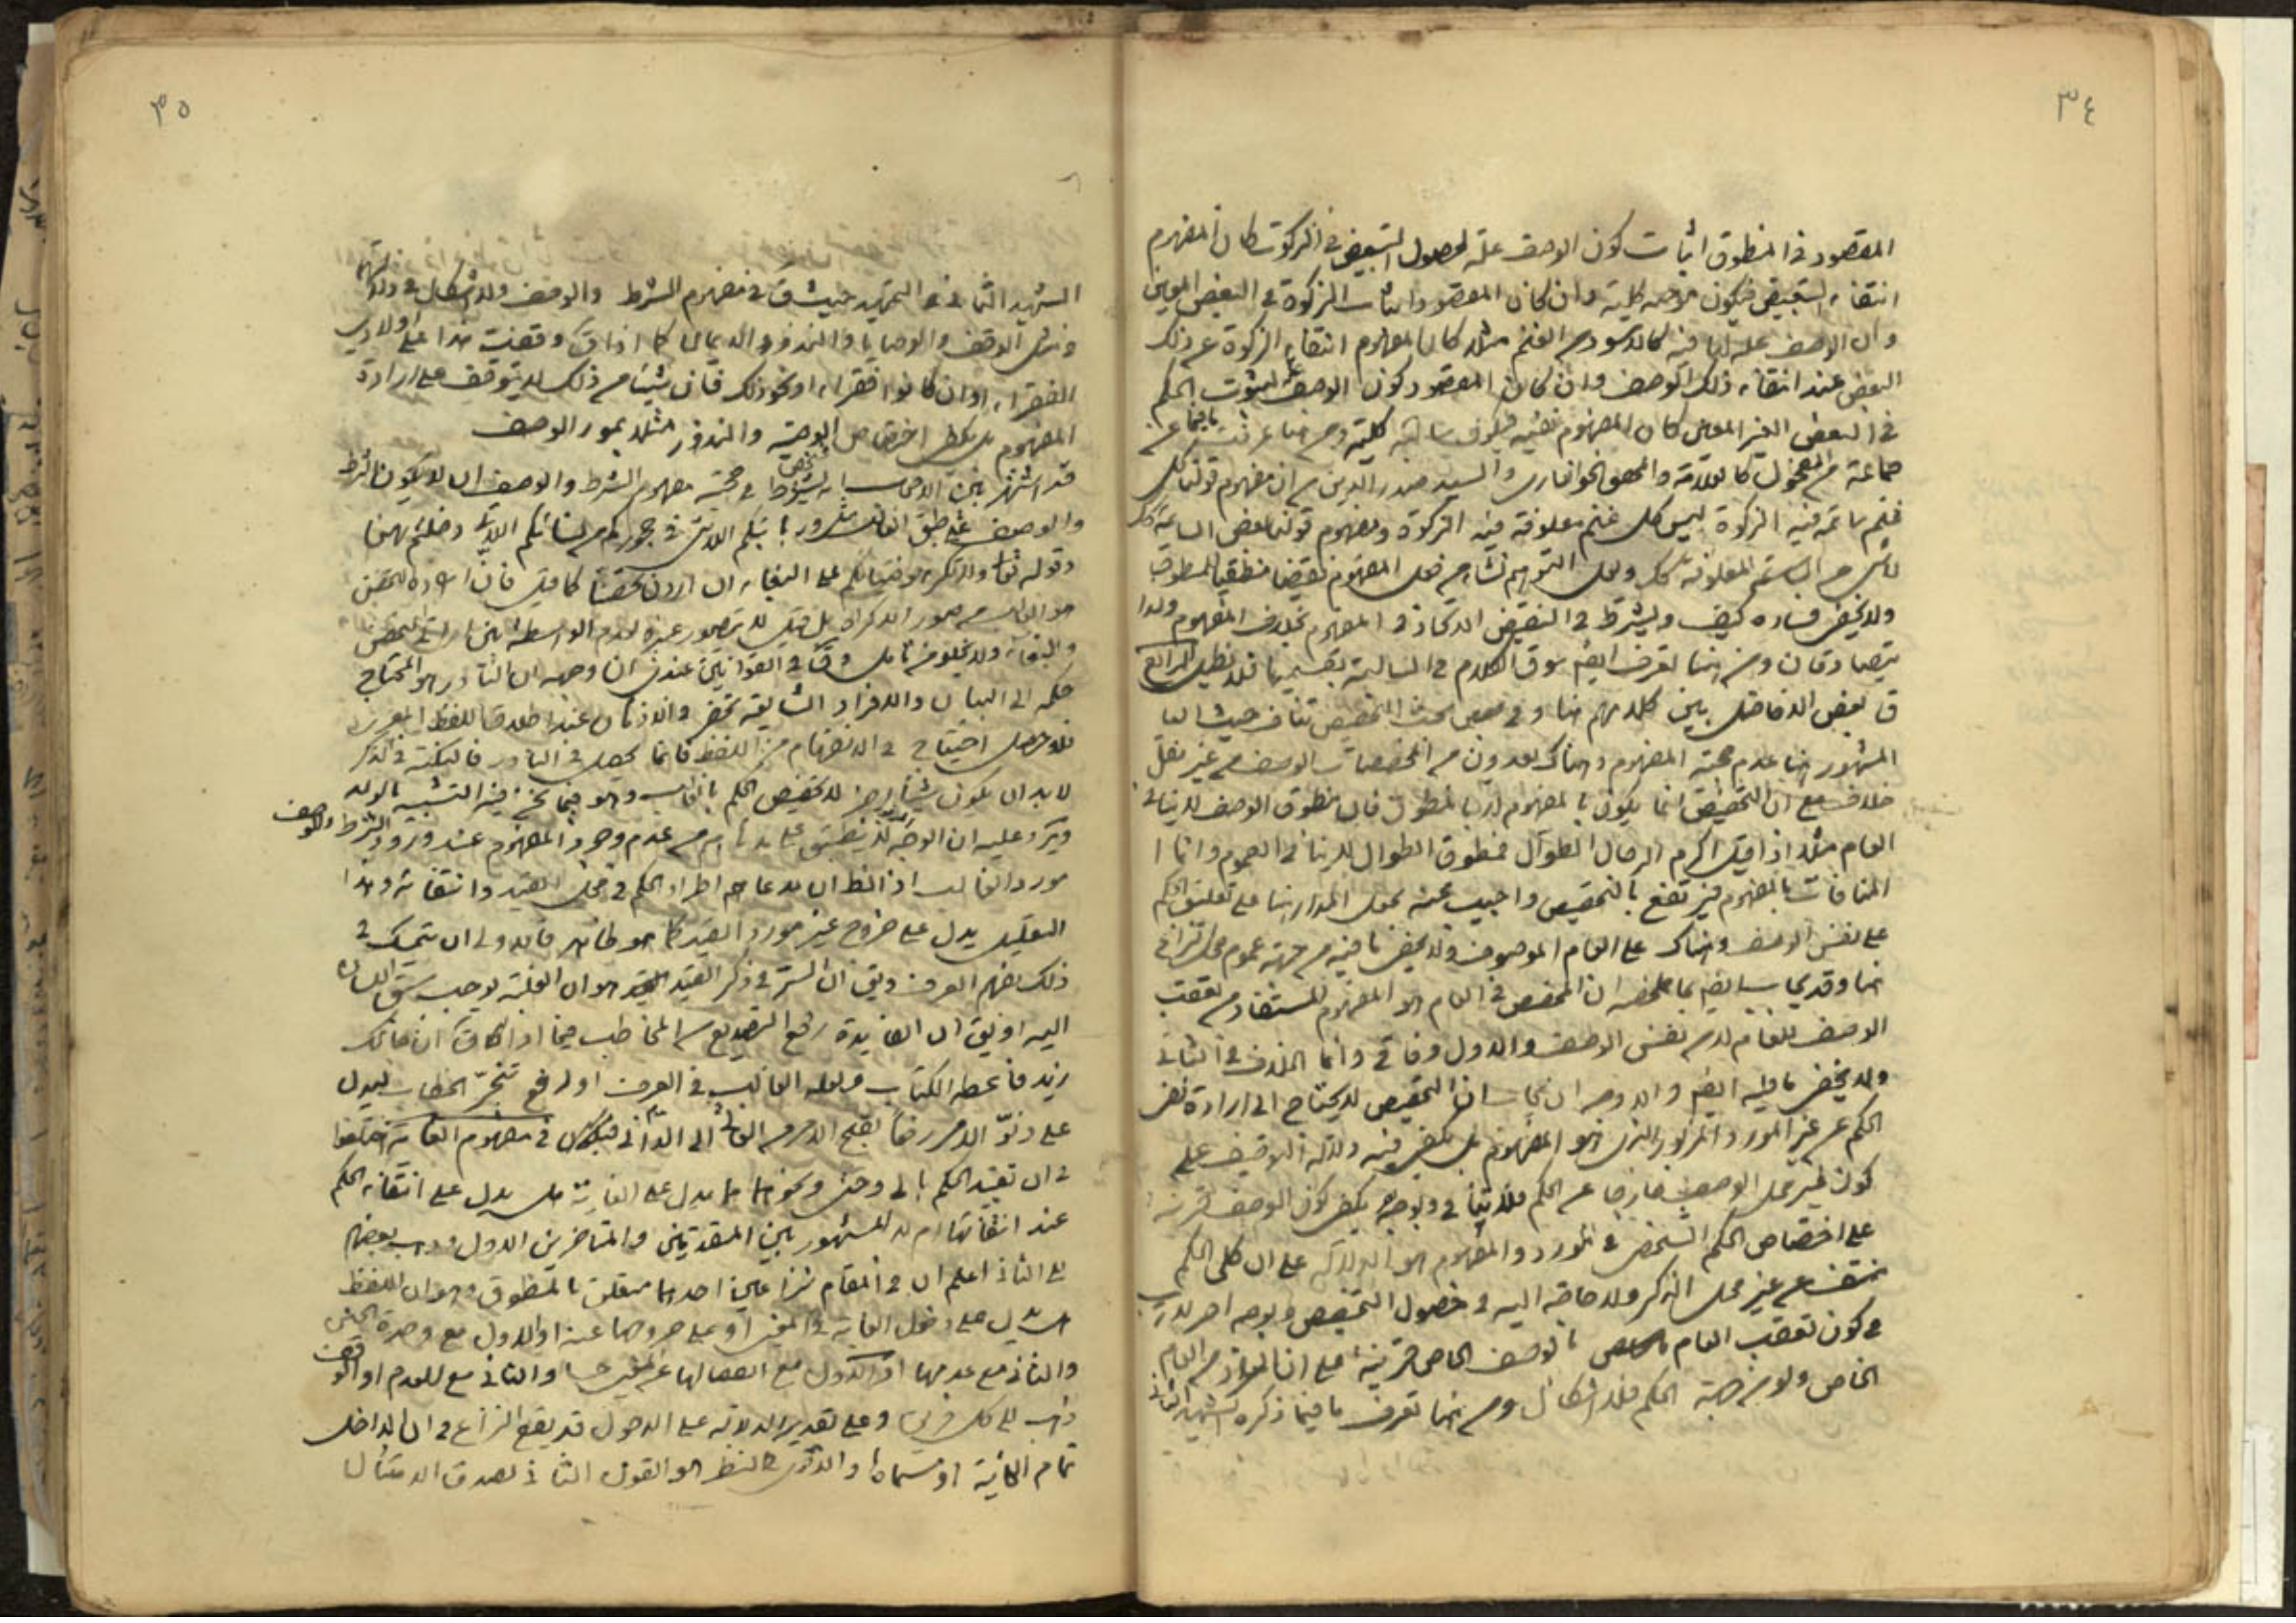 ٣٤
المقصود في المنطوق اثبات كون الوصف علة لحصول التبعيض في الزكوة كان المفهوم
انتفاء التبعيض فيكون موجبة كلية وان كان المقصود اثبات الزكوة في البعض المعين
وان الوصف علة لها فيه كالاسود من الغنم مثلا كان المفهوم انتفاء الزكوة عن ذلك
البعض عند انتفاء ذلك الوصف وان كان المقصود كون الوصف علة لثبوت الحكم
في البعض الغير المعين كان المفهوم نفيه فيكون سالبة كلية ومن هنا عرفت
جماعة من الفحول كالعلامة والمحقق الخوانساري والسيد صدر الدين من ان مفهوم قولنا كل
غنم سائمة فيه الزكوة ليس كل غنم معلوفة فيه الزكوة ومفهوم قولنا بعض السائمة كذلك
لا شيء من المعلوفة كذلك ولعل التوهم نشأ من جعل المفهوم نقيضا منطقيا للمنطوق
ولا يخفى فساده كيف ويشترط في النقيض الاتحاد في المفهوم بخلاف المفهوم ولذا
يتصادقان ومن هنا تعرف ايضا سوق الكلام في السالبة بقسميها فلا نطيل الرابع
ق بعض الافاضل بين كلامهم هنا وفي بعض بحث التخصيص تناف حيث ان
المشهور هنا عدم حجية المفهوم وهناك يعدون من المخصصات الوصف من غير نقل
خلاف مع ان التخصيص انما يكون بالمفهوم لا بالمنطوق فان منطوق الوصف لا ينافي
العام مثلا اذا قيل اكرم الرجال الطوال فمنطوق الطوال لا ينافي العموم وانما
المنافات بالمفهوم فيرتفع بالتخصيص واجيب عنه بجعل المدار هنا على تعليق الحكم
على نفس الوصف وهناك على العام الموصوف ولا يخفى ما فيه من جهة عموم محل النزاع
هنا وقد يجاب ايضا بما ملخصه ان المخصص في العام هو المفهوم المستفاد من تعقب
الوصف للعام لا من نفس الوصف والاول وفاقي وانما الخلاف في الثاني
ولا يخفى ما فيه ايضا والاوجه ان يجاب ان التخصيص لا يحتاج الى ارادة نفي
الحكم عن غير المورد المزبور الذي هو المفهوم بل يكفي فيه دلالة التوصيف على
كون غير محل الوصف خارجا عن الحكم فلا تنافي وبوجه يكفي كون الوصف قرينة
على اختصاص الحكم الشخصي في المورد والمفهوم هو الدلالة على ان كلي الحكم
منتف عن غير محل الذكر ولا حاجة اليه في حصول التخصيص وبوجه اخر لا ريب
في كون تعقب العام بالوصف الخاص قرينة على ان المراد من العام
الخاص ولو من جهة الحكم فلا اشكال ومن هنا تعرف ما فيما ذكره الشهيد الثاني
٣٥
الشهيد الثاني في التمهيد حيث ق في مفهوم الشرط والوصف ولا اشكال في دلالتهما
في مثل الوقف والوصايا والنذور والايمان كما اذا ق وقفت هذا على اولادي
الفقراء او ان كانوا فقراء او نحو ذلك فان شيئا من ذلك لا يتوقف على ارادة
المفهوم بل يكفي اختصاص الوصية والنذور مثلا بمورد الوصف
قد اشتهر بين الاصحاب انه يشترط في حجية مفهوم الشرط والوصف ان لا يكون الشرط
والوصف على طبق الغالب نحو وربائبكم اللاتي في حجوركم من نسائكم اللاتي دخلتم بهن
وقوله تعالى ولا تكرهوا فتياتكم على البغاء ان اردن تحصنا كما قيل فان ارادة التحصن
هو الغالب من صور الاكراه بل قيل لا يتصور غيره لعدم الواسطة بين ارادة التحصن
والبغاء ولا يخلو من تأمل وق في القوانين عندي ان وجهه ان النادر هو المحتاج
حكمه الى البيان والافراد الشايعة تحضر في الاذهان عند اطلاق اللفظ المعرى
فلو حصل احتياج في الانفهام من اللفظ فانما يحصل في النادر فالنكتة في الذكر
لا بد ان يكون شيئا اخر لا تخصيص الحكم بالغالب وهو فيما نحن فيه التشبيه بالولد
ويرد عليه ان الوجه لا ينطبق على مدعاهم من عدم وجود المفهوم عند ورود الشرط والوصف
مورد الغالب اذ الظ ان مدعاهم اطراد الحكم في محل القيد وانتفائه وهذا
التعليل يدل على خروج غير مورد القيد كما هو ظاهر فالاولى ان يتمسك في
ذلك بفهم العرف ويق ان السر في ذكر القيد هو ان الغلبة توجب سبق اللسان
اليه او يق ان الفائدة رفع التضييع من المخاطب فيما اذا ق ان جائك
زيد فاعطه الكتاب ولعله الغالب في العرف او لرفع تنجز الخطاب ليدل
على دنو الامر رفعا لقبح الامر من العالي الى الداني فيكون في مفهوم الغاية اختلفوا
في ان تقييد الحكم بالى وحتى ونحوهما مما يدل على الغاية هل يدل على انتفاء الحكم
عند انتفائها ام لا المشهور بين المتقدمين والمتاخرين الاول وذهب بعضهم
الى الثاني اعلم ان في المقام نزاعين احدهما متعلق بالمنطوق وهو ان اللفظ
هل يدل على دخول الغاية في المغيى او على خروجها عنه او الاول مع وحدة الجنس
والثاني مع عدمها او الاول مع اتصالها والثاني مع العدم او الوقف
ذهب الى كل فريق وعلى تقدير الدلالة على الدخول قد يقع النزاع في ان الداخل
تمام الغاية او مسماه والاقرب في النظر هو القول الثاني لصدق الامتثال